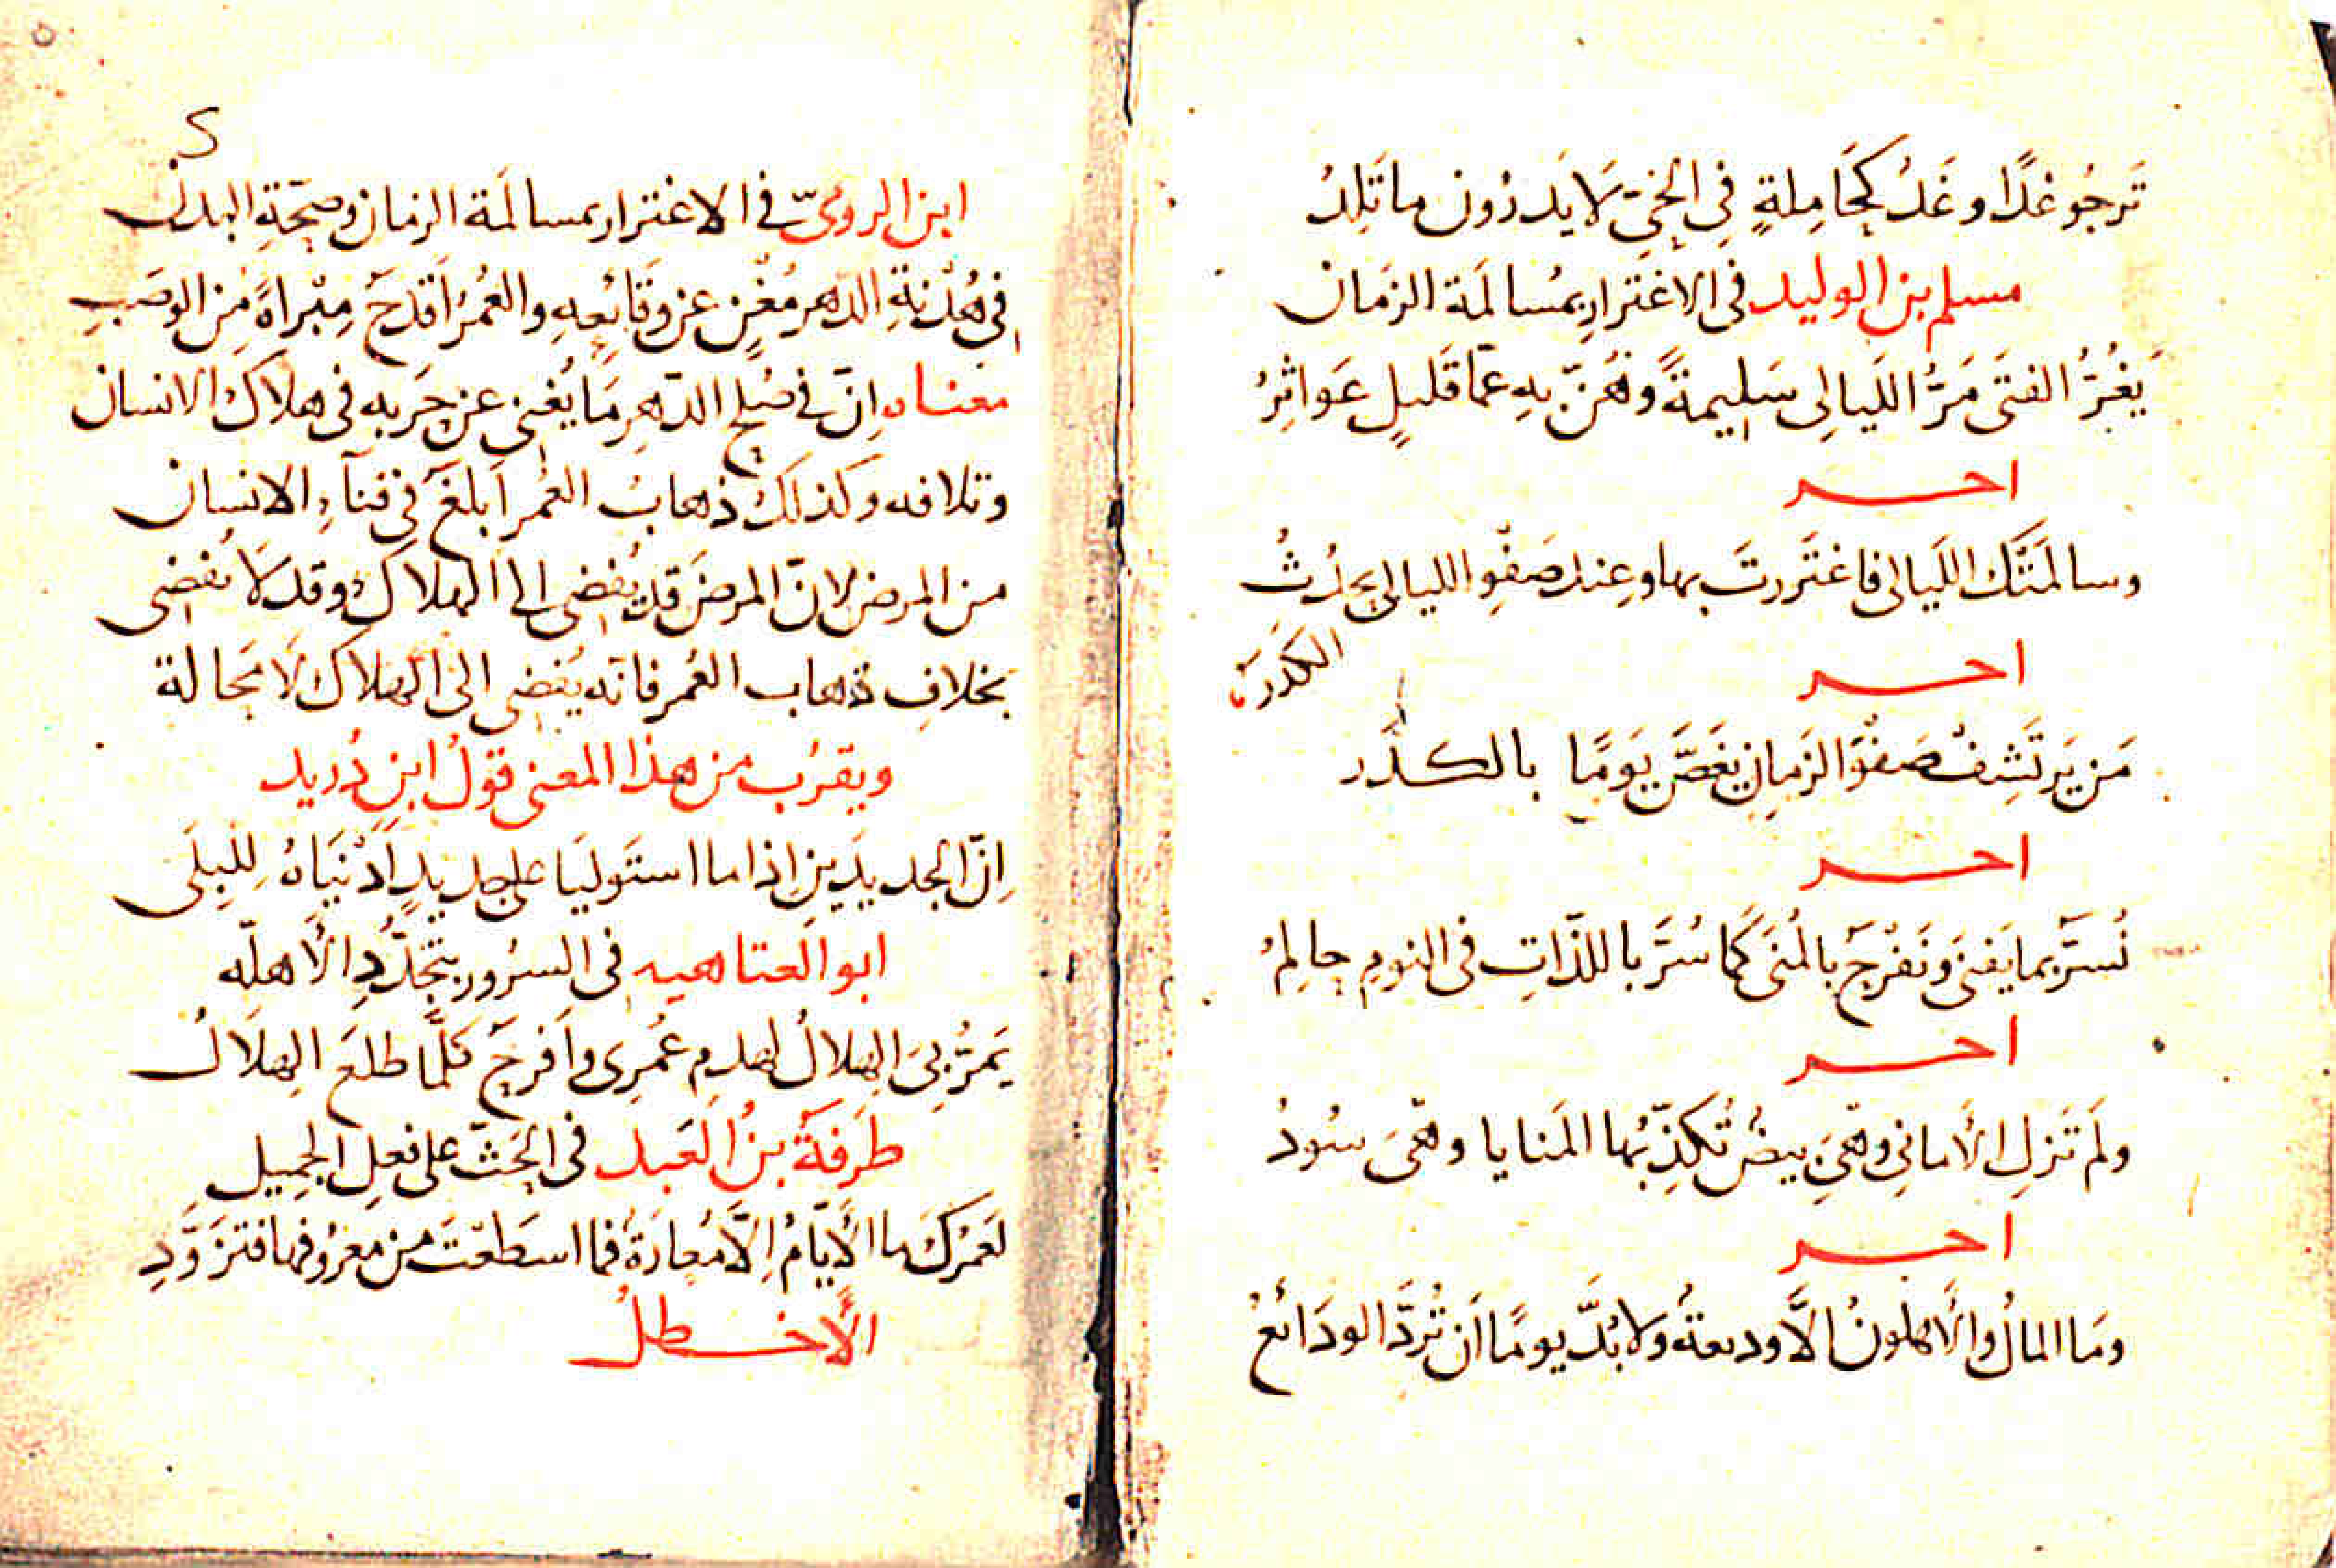 تَرجُو غدًا وغَدٌ كَحَامِلةٍ فِي الحَيِّ لَا يَدرُون ما تَلِدُ
مسلم بن الوليد فى الاغترارِ بمُسالَمَة الزمَان
يَغُرُّ الفتَى مَرُّ اللَيالِى سَلِيمةً وهُنّ بهِ عَمّا قَليلٍ عَواثِرُ
اخر
وسالمَتَكَ اللَيالى فاغتَررتَ بها وعِند صَفْوِ الليالى يَحدُثُ
الكَدَرُ
اخر
مَن يَرتَشِفْ صَفْوَ الزمانِ يَغَصَّ يَومًا بالكدَر
اخر
نُسَرُّ بما يَفنَى ونَفرَحُ بالمُنَى كما سُرَّ باللذّاتِ فى النومِ حالِمُ
اخر
ولَم تَزلِ الأمانِى وهْىَ بيضٌ تُكَذِّبُها المَنايا وهْىَ سُودُ
اخر
ومَا المالُ والأهلونُ الَّا وديعةٌ ولا بُدَّ يومًا أن تُردَّ الودَائعُ
ابن الرومىّ فى الاغترار بمسالَمة الزمان وصِحّةِ البدن
فِى هُدْنةِ الدهر مُغْنٍ عن وقَائعِهِ والعُمْرُ أقدحُ مِبْراةً مِن الوصَبِ
معناه اِنّ فى صُلحِ الدّهرِ مَا يُغنِى عن حَربه فى هلاك الانسان
وتلافه وكذلك ذهابُ العُمر أبلغَ فى فنآءِ الانسان
من المرض لانّ المرضَ قد يُفضِى الى الهلاك وقد لَا يُفضِى
بخلافِ ذهاب العُمر فانّه يُفضِى الى الهلاك لَا مَحالة
ويقرُب من هذا المعنى قولُ ابنِ دُريد
اِنّ الجديدَينِ اِذا ما استَوليَا على جديدٍ أدْنَيَاهُ لِلبِلَى
ابو العتاهيه فى السرُور بتجدُّدِ الأهلّه
يَمرُّ بِىَ الهلالُ لهدمِ عُمرِى وأفرحُ كلَّما طلعَ الهِلَالُ
طَرفةُ بنُ العَبد فى الحَثِّ على فعلِ الجمِيل
لَعَمرُكَ ما الأيّامُ اِلَّا مُعارَةٌ فما اسطَعْتَ من معرُوفها فتزَوَّدِ
الأخطلُ